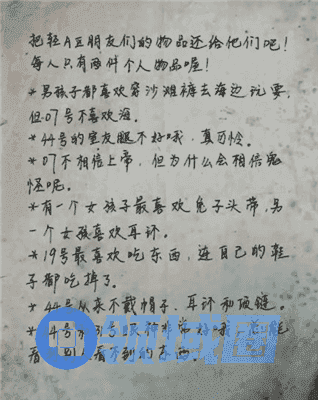 把轻A豆朋友们的物品还给他们吧!
每人只有两件个人物品喔!
*男孩子都喜欢穿沙滩裤去海边玩耍,
但07号不喜欢海。
*44号的室友腿不好哦,真可怜。
*07不相信上帝,但为什么会相信鬼
怪呢。
*有一个女孩子最喜欢兔子头带,另
一个女孩喜欢耳讦。
*19号最喜欢吃东西,连自己的鞋
子都吃掉了。
*44号从来不戴帽子、耳讦和项链。
*4号
看 看不到的东西。